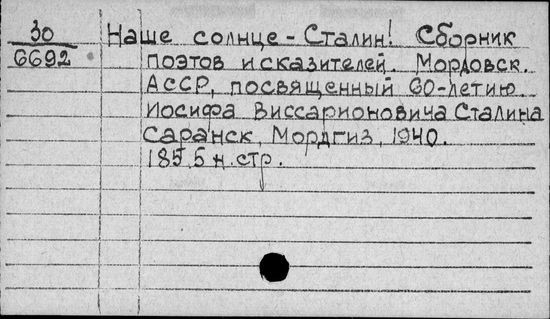 30
6692
Наше солнце - Сталин! Сборник
поэтов и сказителей. Мордовск.
АССР, посвященный 60-летию
Иосифа Виссарионовича Сталина
Саранск, Мордгиз, 1940.
185,5 н. стр.